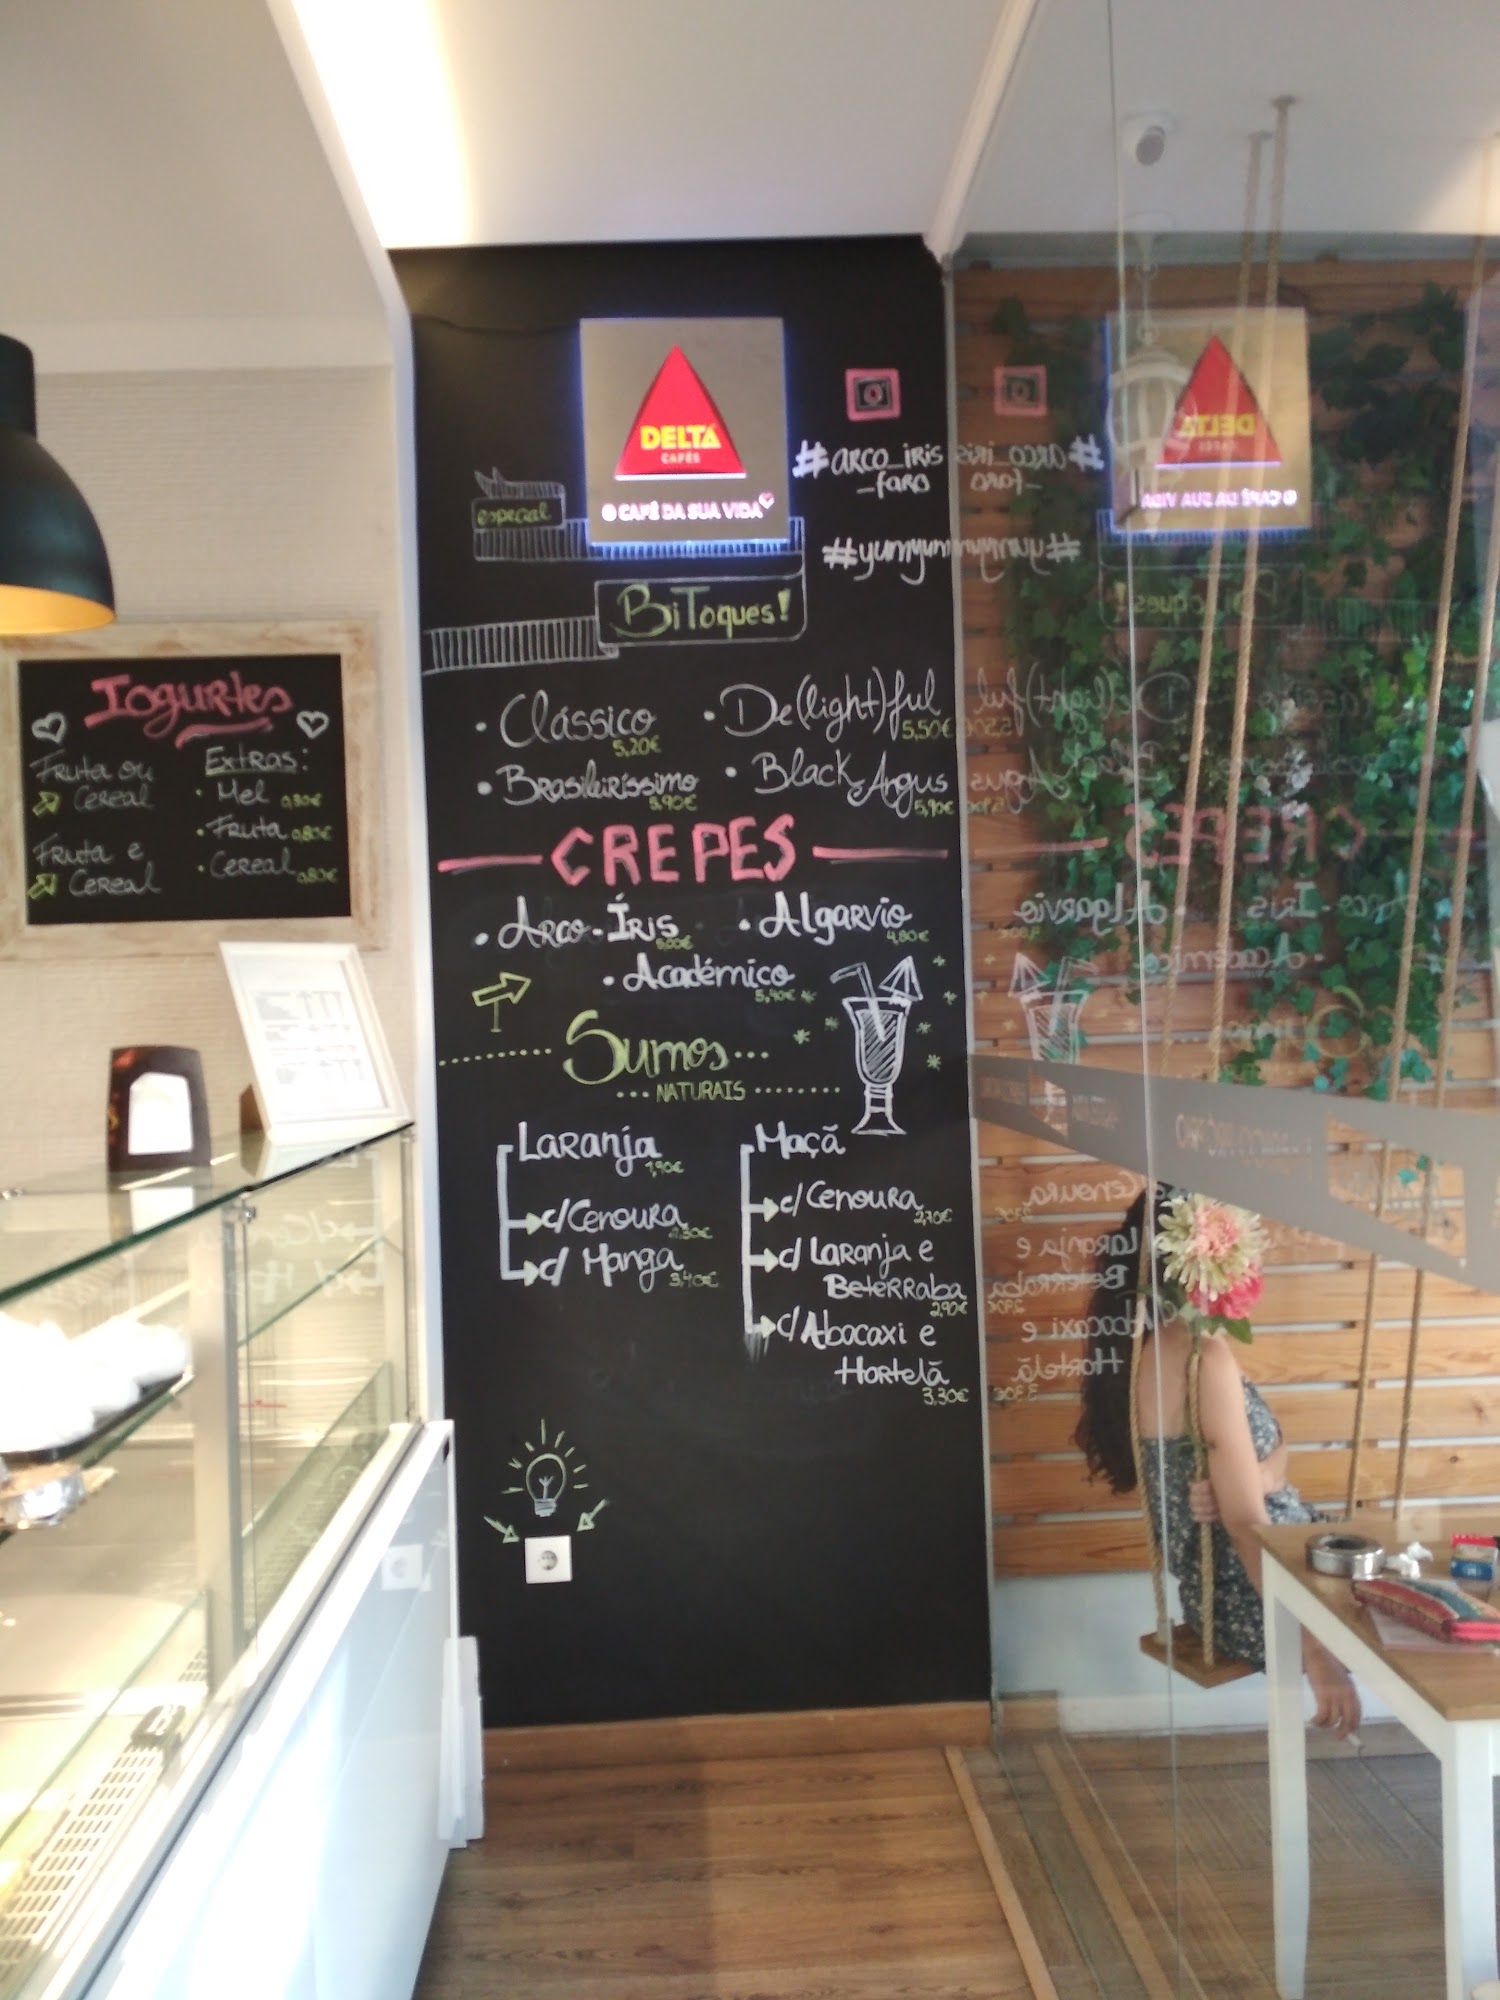 DELTA
CAFÉS
O CAFÉ DA SUA VIDA
#arco_iris
_faro
especial
BiToques!
Iogurtes
Fruta ou
Cereal
Fruta e
Cereal
Extras:
• Mel 0,80€
• Fruta 0,80€
• Cereal 0,80€
• Clássico 5,20€
• De(light)ful 5,50€
• Brasileiríssimo 5,90€
• Black Angus 5,90€
CREPES
• Arco-Íris 5,00€
• Algarvio 4,80€
• Académico 5,40€
Sumos
NATURAIS
Laranja 1,90€
c/Cenoura 2,50€
c/ Manga 3,40€
Maçã
c/Cenoura 2,70€
c/ Laranja e
Beterraba 2,90€
c/Abacaxi e
Hortelã 3,30€